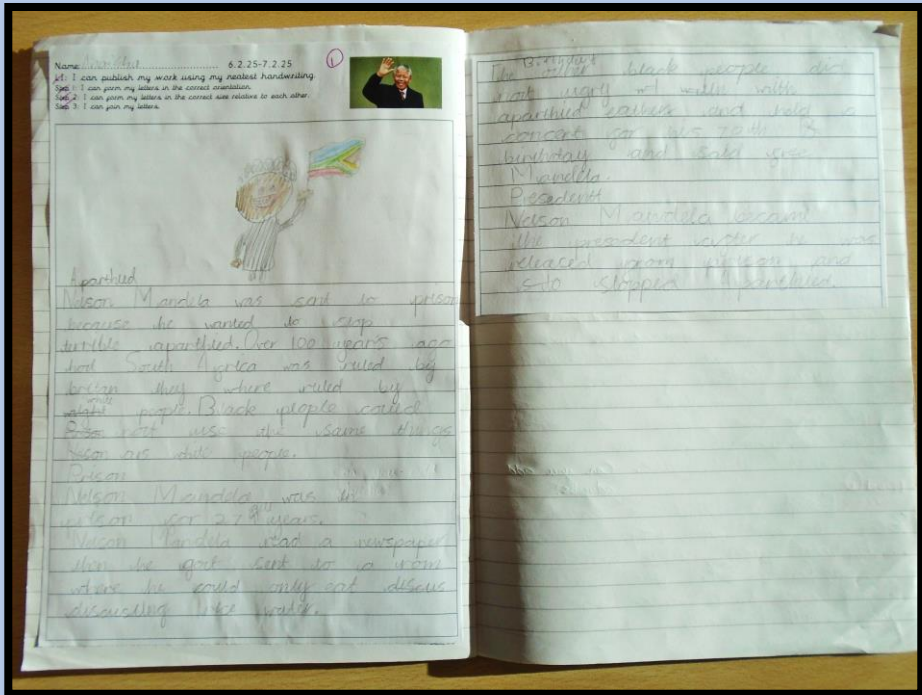 Name 6.2.25-7.2.25 1
L1: I can publish my work using my neatest handwriting.
Step 1: I can form my letters in the correct orientation.
Step 2: I can form my letters in the correct size relative to each other.
Step 3: I can join my letters.
Aparthied
Nelson Mandela was sent to prison
because he wanted to stop
terrible aparthied. Over 100 years ago
South Africa was ruled by
they where ruled by
white people. Black people could
not use the same things
as white people.
Prison
Nelson Mandela was in
prison for 27 years.
Nelson Mandela read a newspaper
then he got sent to a room
where he could only eat discus
discusting rice water.
Birthday
The other black people did
not agree with
aparthied and held a
concert for his 70th
birthday and said free
Mandela.
Presedent
Nelson Mandela became
the presedent after he was
released from prison and
stopped Aparthied.